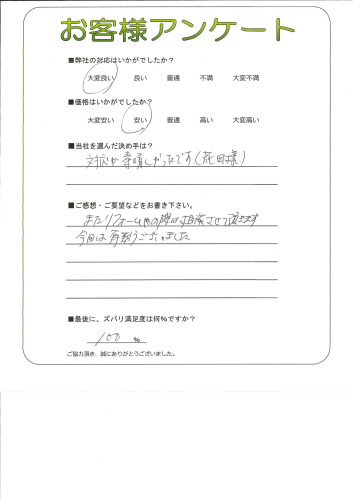 お客様アンケート
■弊社の対応はいかがでしたか?
大変良い 良い 普通 不満 大変不満
■価格はいかがでしたか?
大変安い 安い 普通 高い 大変高い
■当社を選んだ決め手は?
対応が素晴しかったです(花田様)
■ご感想・ご要望などをお書き下さい。
またリフォームの際は相談させて頂きます
今回は有難うございました
■最後に、ズバリ満足度は何%ですか?
100 %
ご協力頂き、誠にありがとうございました。